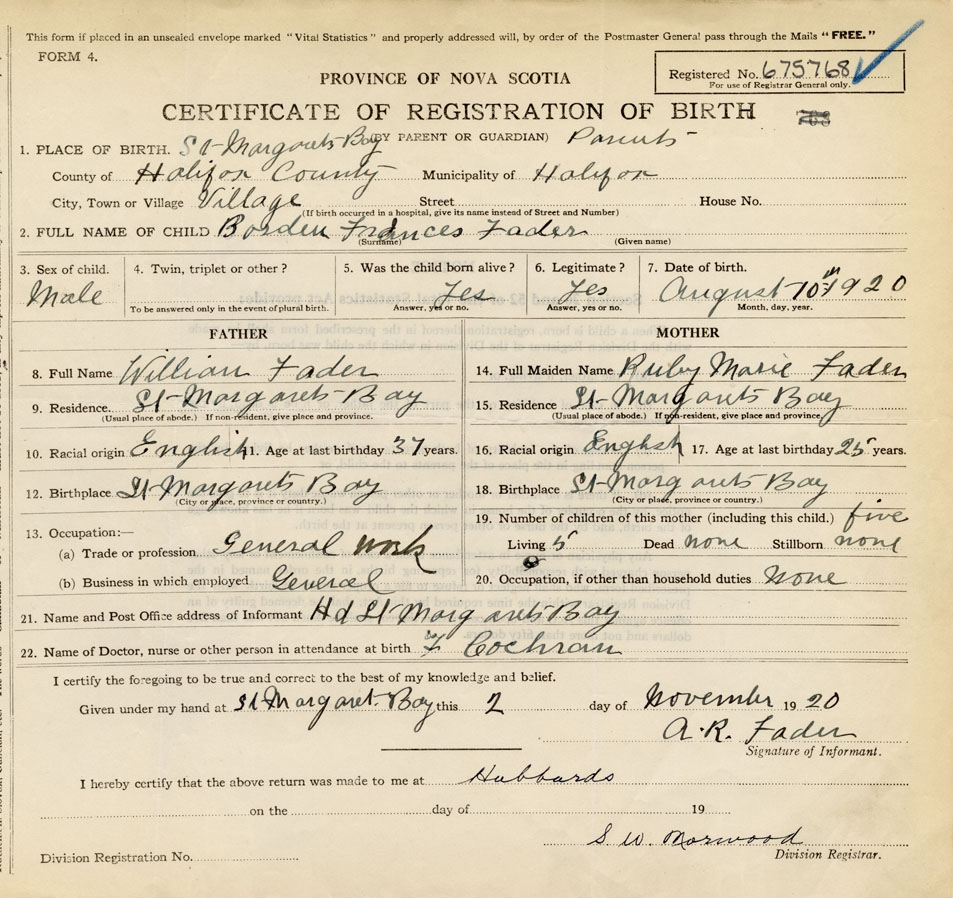 This form if placed in an unsealed envelope marked "Vital Statistics" and properly addressed will, by order of the Postmaster General pass through the Mails "FREE."
FORM 4.
Registered No. 675768
For use of Registrar General only.
PROVINCE OF NOVA SCOTIA
CERTIFICATE OF REGISTRATION OF BIRTH
(BY PARENT OR GUARDIAN) Parents
1. PLACE OF BIRTH. St-Margarets-Bay
County of Halifax County Municipality of Halifax
City, Town or Village Village Street House No.
(If birth occurred in a hospital, give its name instead of Street and Number)
2. FULL NAME OF CHILD Borden Frances Fader
(Surname) (Given name)
3. Sex of child. 4. Twin, triplet or other? 5. Was the child born alive? 6. Legitimate? 7. Date of birth.
Male Yes Yes August 10th 1920
To be answered only in the event of plural birth. Answer, yes or no. Answer, yes or no. Month, day, year.
FATHER
8. Full Name William Fader
9. Residence. St-Margarets-Bay
(Usual place of abode.) If non-resident, give place and province.
10. Racial origin English 11. Age at last birthday 37 years.
12. Birthplace St-Margarets Bay
(City or place, province or country.)
13. Occupation:—
(a) Trade or profession General work
(b) Business in which employed General
MOTHER
14. Full Maiden Name Ruby Marie Fader
15. Residence St-Margarets Bay
(Usual place of abode.) If non-resident, give place and province.
16. Racial origin English 17. Age at last birthday 25 years.
18. Birthplace St-Margarets Bay
(City or place, province or country.)
19. Number of children of this mother (including this child.) five
Living 5 Dead none Stillborn none
20. Occupation, if other than household duties None
21. Name and Post Office address of Informant Hd St-Margarets Bay
22. Name of Doctor, nurse or other person in attendance at birth Cochran
I certify the foregoing to be true and correct to the best of my knowledge and belief.
Given under my hand at St-Margaret-Bay this 2 day of November 1920
A. R. Fader
Signature of Informant.
I hereby certify that the above return was made to me at Hubbards
on the day of 19
S. W. Norwood
Division Registrar.
Division Registration No.